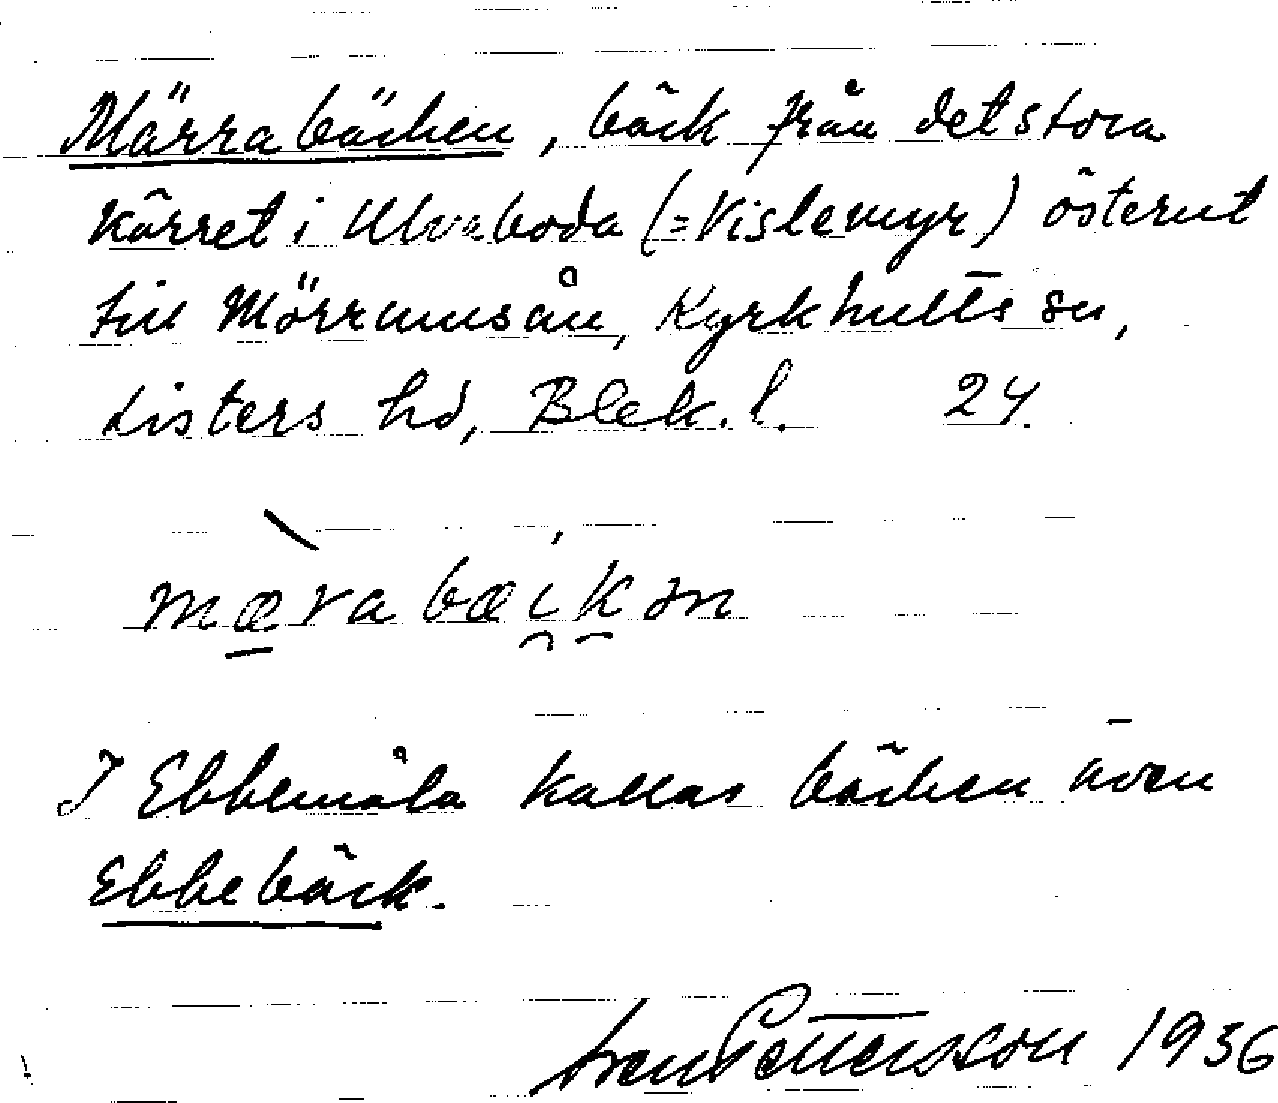 Märrabäcken, bäck från det stora
kärret i Ulvaboda (= Vislemyr) österut
till Mörrumsån, Kyrkhults sn,
Listers hd, Blek. l. 24.
mæ̱rabæi̯kən
I Ebbemåla kallas bäcken även
Ebbebäck.
Sven Pettersson 1936